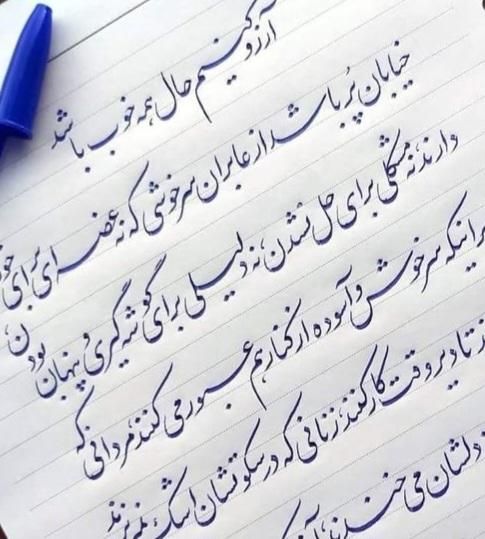 آرزو کنیم حال همه خوب باشد
خیابان پُر باشد از عابران سرخوشی که نه غصه ای برای
دارند، نه مشکلی برای حل نشدن، نه دلیلی برای گوشه گیری و پنهان بودن،
سرخوش و آسوده از کنار هم عبور می کنند، مردانی که
تا دیر وقت کار کنند، زنانی که در سکوتشان اشک نمی ریزند
دلشان می خندد،